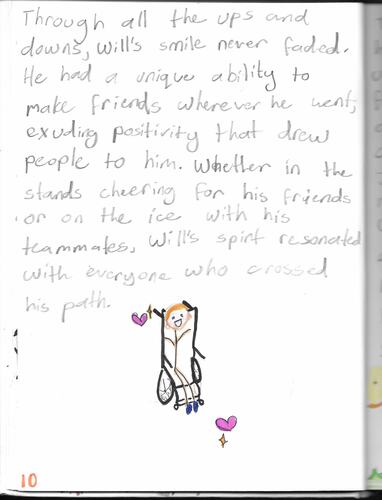 Through all the ups and
downs, Will's smile never faded.
He had a unique ability to
make friends wherever he went,
exuding positivity that drew
people to him. Whether in the
stands cheering for his friends
or on the ice with his
teammates, Will's spirt resonated
with everyone who crossed
his path.
10